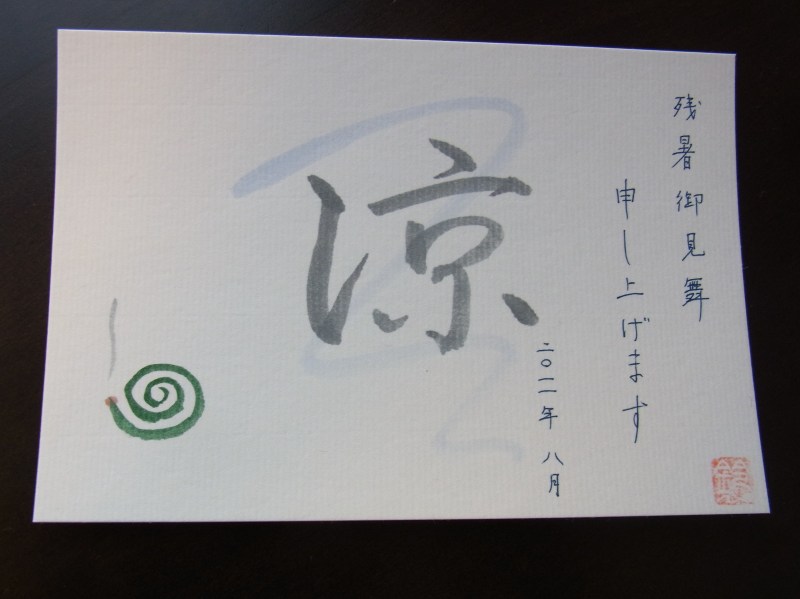 残暑御見舞
申し上げます
二〇一一年 八月
涼